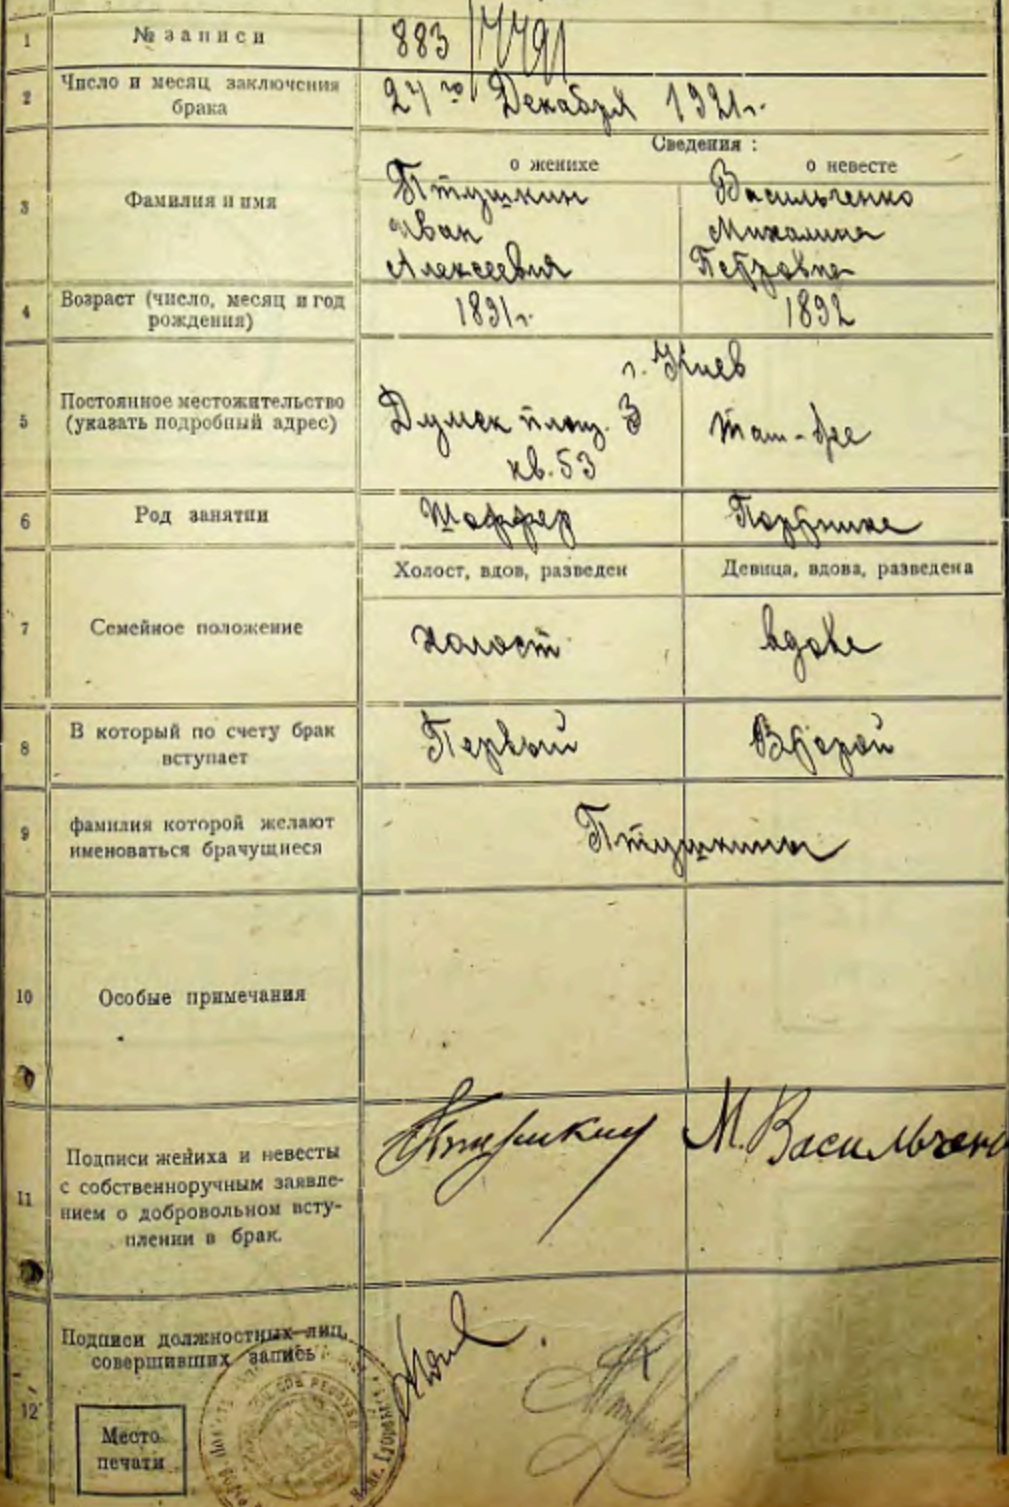 1 № записи 883
2 Число и месяц заключения
брака
24 го Декабря 1921 г.
Сведения :
о женихе о невесте
3 Фамилия и имя
Птушкин Васильченко
Иван Михалина
Алексеевич Петровна
4 Возраст (число, месяц и год
рождения)
1891 г. 1892
г. Киев
5 Постоянное местожительство
(указать подробный адрес)
Думск площ. 3 там-же
кв. 53
6 Род занятии Шоффер Портниха
Холост, вдов, разведен Девица, вдова, разведена
7 Семейное положение холост вдова
8 В который по счету брак
вступает
Первый Второй
9 фамилия которой желают
именоваться брачущиеся
Птушкины
10 Особые примечания
11 Подписи жениха и невесты
с собственноручным заявле-
нием о добровольном всту-
плении в брак.
Птушкин М. Васильченко
12 Подписи должностных лиц,
совершивших запись
Место
печати